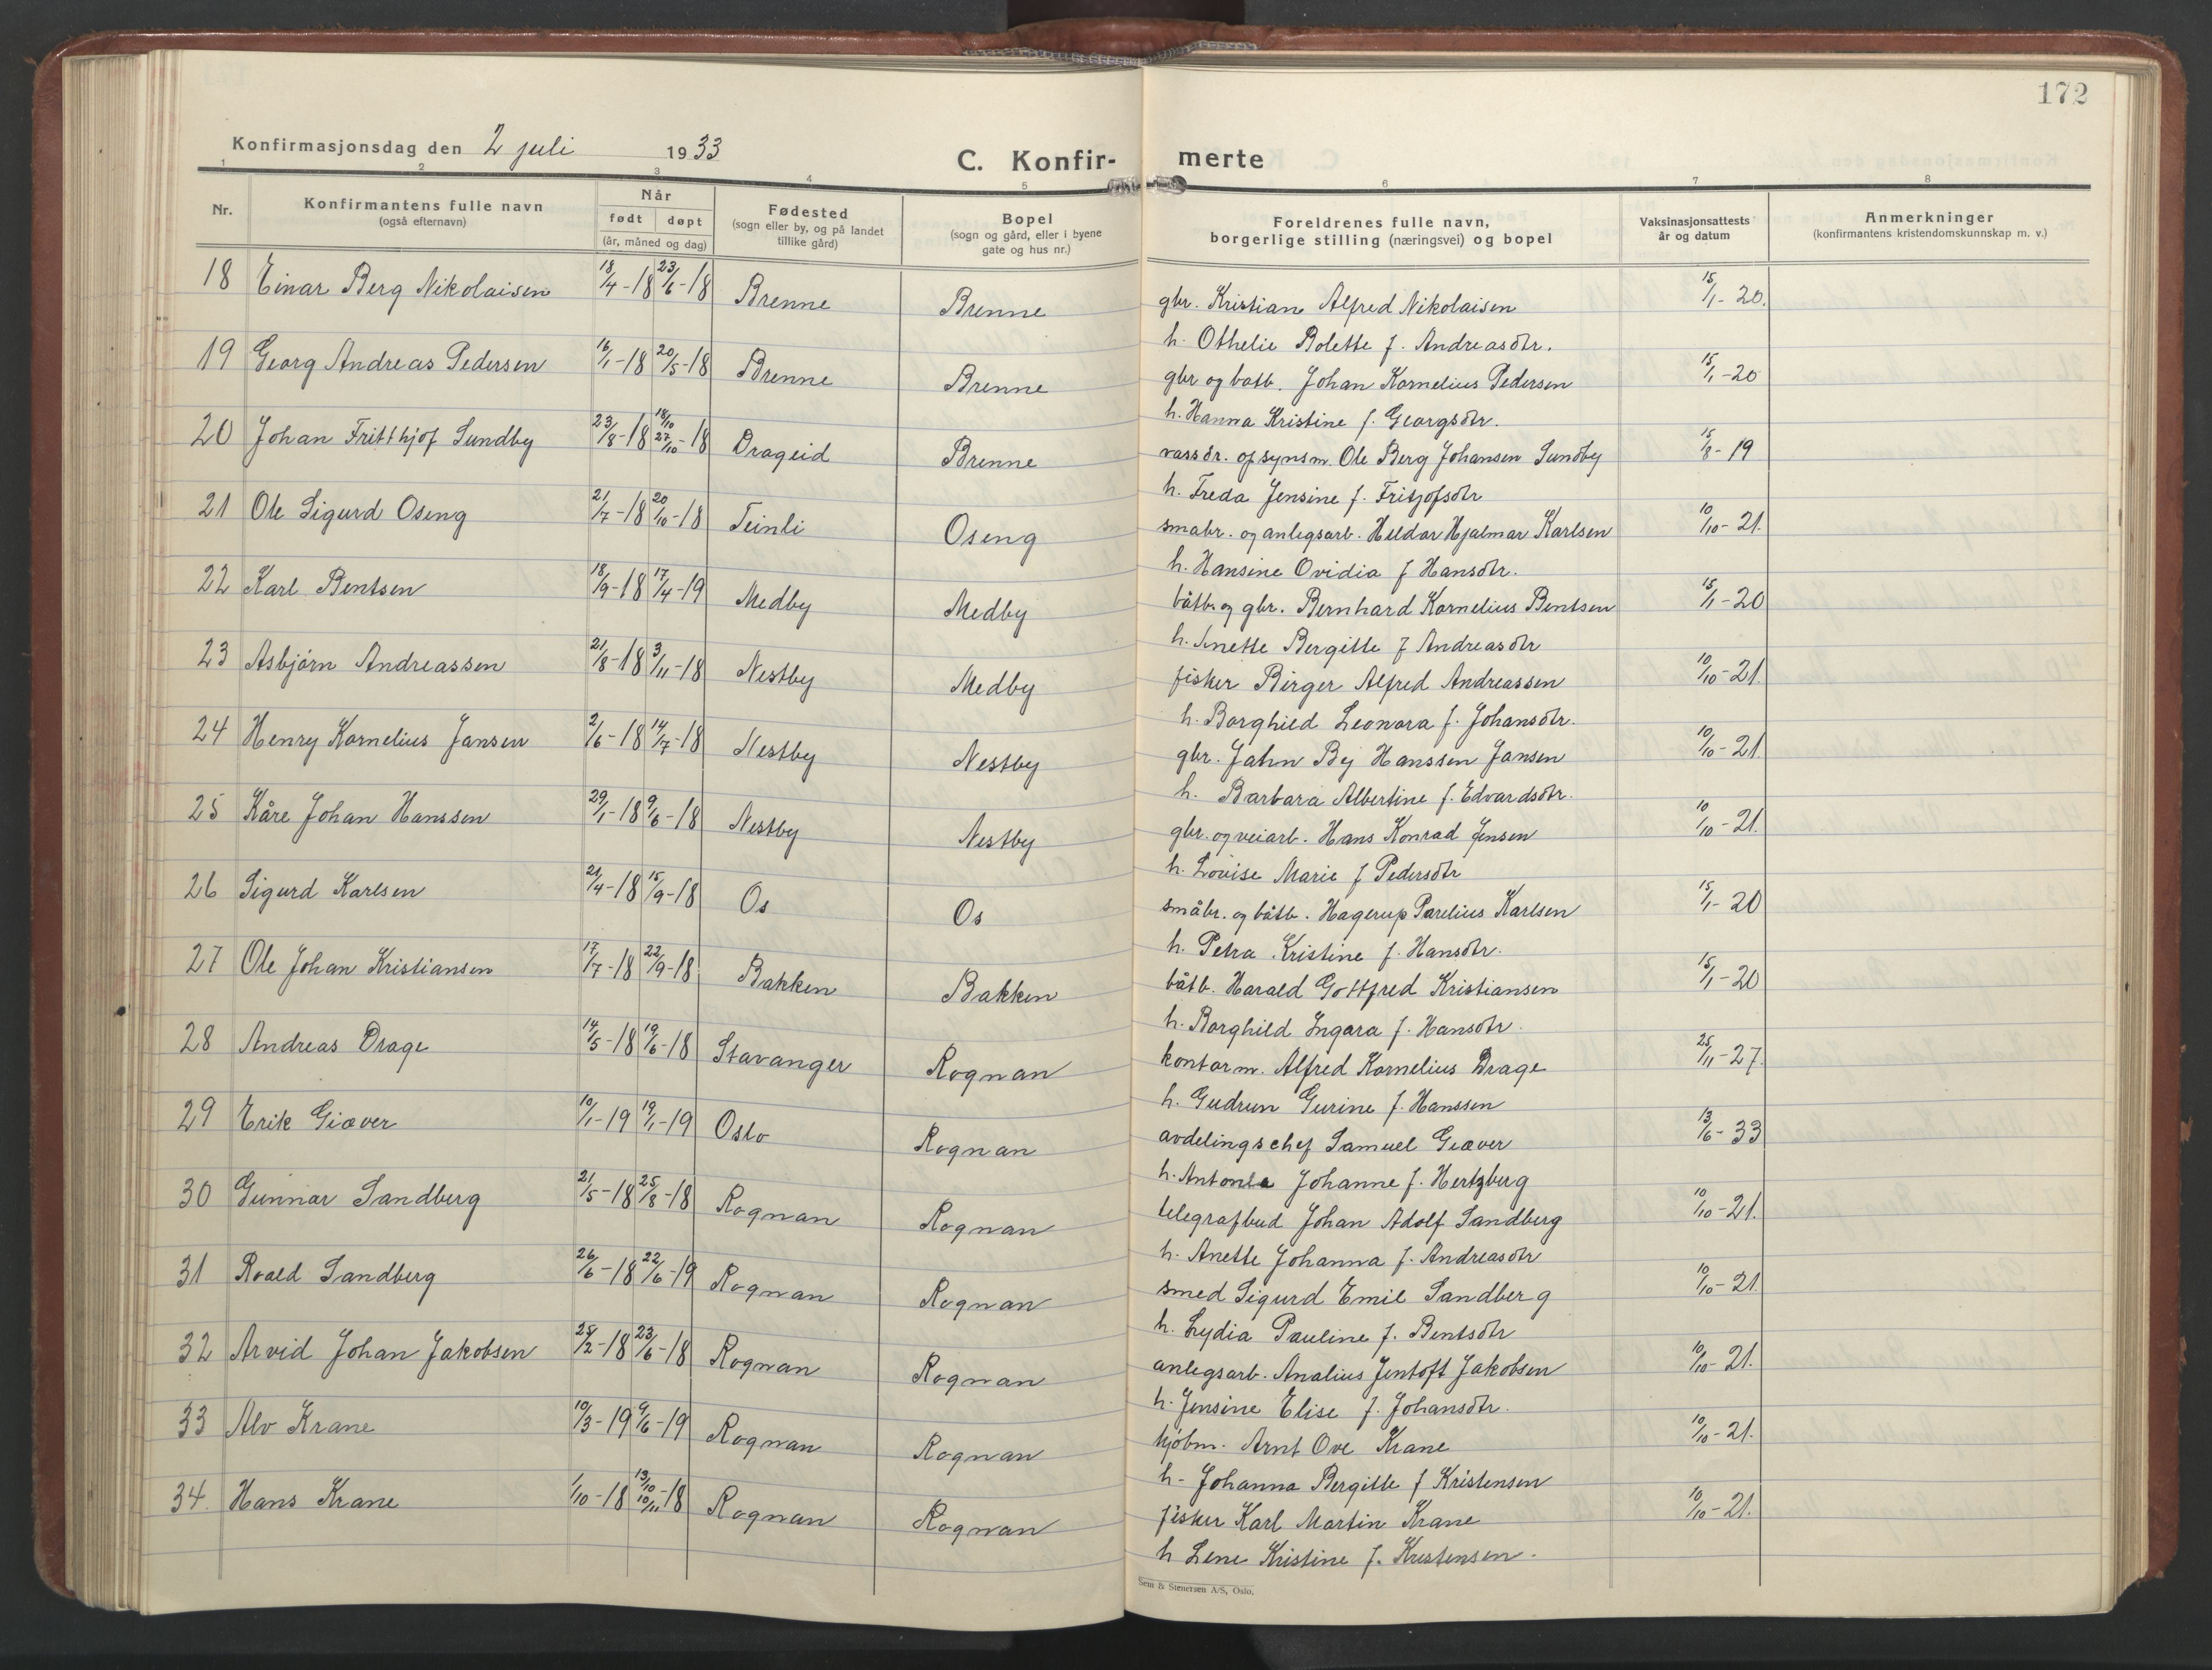 172
Konfirmasjonsdag den 2 juli 1933
C. Konfir- merte
1 2 3 4 5 6 7 8
Nr.
Konfirmantens fulle navn
(også efternavn)
Når
født døpt
(år, måned og dag)
Fødested
(sogn eller by, og på landet
tillike gård)
Bopel
(sogn og gård, eller i byene
gate og hus nr.)
Foreldrenes fulle navn,
borgerlige stilling (næringsvei) og bopel
Vaksinasjonsattests
år og datum
Anmerkninger
(konfirmantens kristendomskunnskap m. v.)
18 Einar Berg Nikolaisen 18/4-18 23/6-18 Brenne Brenne gbr. Kristian Alfred Nikolaisen 15/1-20.
h. Othelie Bolette f. Andreasdtr.
19 Georg Andreas Pedersen 16/1-18 20/5-18 Brenne Brenne gbr og båtb. Johan Kornelius Pedersen 15/1-20
h. Hanna Kristine f. Georgsdtr.
20 Johan Fritthjof Sundby 23/8-18 18/10 27/10-18 Drageid Brenne vassdr. opsynsm. Ole Berg Johansen Sundby 15/8-19
h. Freda Jensine f. Fritjofsdtr
21 Ole Sigurd Oseng 21/7-18 20/10-18 Teinli Oseng småbr. og anlegsarb. Heldor Hjalmar Karlsen 10/10-21.
h. Hansine Ovidia f Hansdtr.
22 Karl Bentsen 18/9-18 17/4-19 Medby Medby båtb. og gbr. Bernhard Kornelius Bentsen 15/1-20
h. Anette Bergitte f Andreasdtr
23 Asbjørn Andreassen 21/8-18 3/11-18 Nestby Medby fisker Birger Alfred Andreassen 10/10-21.
h. Borghild Leonora f. Johansdtr.
24 Henry Kornelius Jansen 2/6-18 14/7-18 Nestby Nestby gbr. Jahn Bej Hanssen Jansen 10/10-21.
h. Barbara Albertine f. Edvardsdtr.
25 Kåre Johan Hanssen 29/1-18 9/6-18 Nestby Nestby gbr. og veiarb. Hans Konrad Jensen 10/10-21.
h. Lovise Marie f Pedersdtr
26 Sigurd Karlsen 21/4-18 15/9-18 Os Os småbr. og båtb. Hagerup Parelius Karlsen 15/1-20
h. Petra Kristine f. Hansdtr.
27 Ole Johan Kristiansen 17/7-18 22/9-18 Bakken Bakken båtb. Harald Gottfred Kristiansen 15/1-20
h. Borghild Ingara f. Hansdtr.
28 Andreas Drage 14/5-18 19/6-18 Stavanger Rognan kontorm. Alfred Kornelius Drage 25/11-27.
h. Gudrun Gurine f. Hanssen
29 Erik Giæver 10/1-19 19/1-19 Oslo Rognan avdelingschef Samuel Giæver 13/6-33
h. Johanne f. Hertzberg
30 Gunnar Sandberg 21/5-18 25/8-18 Rognan Rognan telegrafbud Johan Adolf Sandberg 10/10-21.
h. Anette Johanna f. Andreasdtr
31 Roald Sandberg 26/6-18 22/6-19 Rognan Rognan smed Sigurd Emil Sandberg 10/10-21.
h. Lydia Pauline f. Bentsdtr
32 Arvid Johan Jakobsen 25/2-18 23/6-18 Rognan Rognan anlegsarb. Analius Jentoft Jakobsen 10/10-21.
h. Jensine Elise f. Johansdtr.
33 Alv Krane 10/3-19 9/6-19 Rognan Rognan kjøbm. Arnt Ove Krane 10/10-21.
h- Johanna Bergitte f Kristensen
34. Hans Krane 1/10-18 13/10 10/11-18 Rognan Rognan fisker Karl Martin Krane 10/10-21.
h Lene Kristine f. Kristensen.
Sem & Stenersen A/S, Oslo.